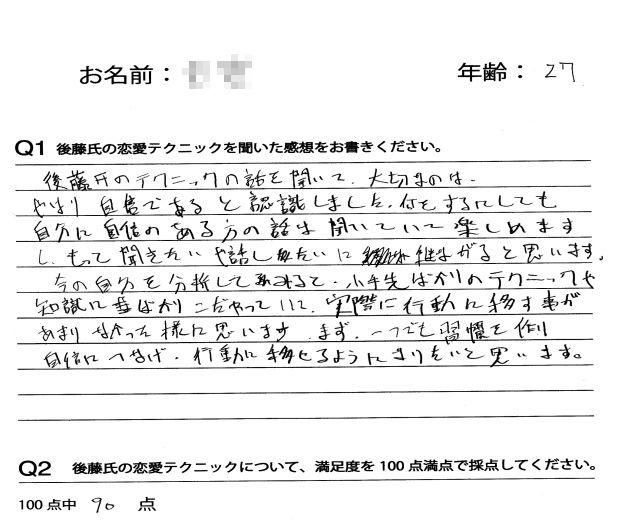 お名前：
年齢： 27
Q1 後藤氏の恋愛テクニックを聞いた感想をお書きください。
後藤氏のテクニックの話を聞いて、大切なのは、
やはり自信であると認識しました。何をするにしても
自分に自信のある方の話は聞いていて楽しめます
し、もって聞きたいや話しみたいに 繋がると思います。
今の自分を分析してみると、小手先ばかりのテクニックや
知識にばかりこだわっていて、実際に行動に移す事が
あまりなかった様に思います。まず、一つでも習慣を作り
自信につなげ、行動に移せるようになりたいと思います。
Q2 後藤氏の恋愛テクニックについて、満足度を100点満点で採点してください。
100点中 90 点